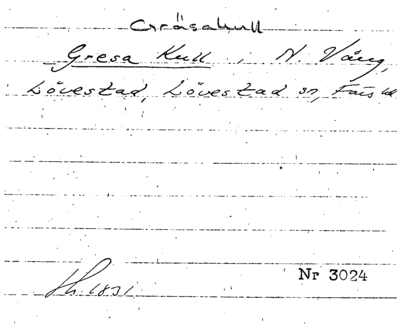 Gräsakull
Gresa Kull, N. Vång,
Lövestad, Lövestad sn, Färs hd
Nr 3024
Sk. 1831